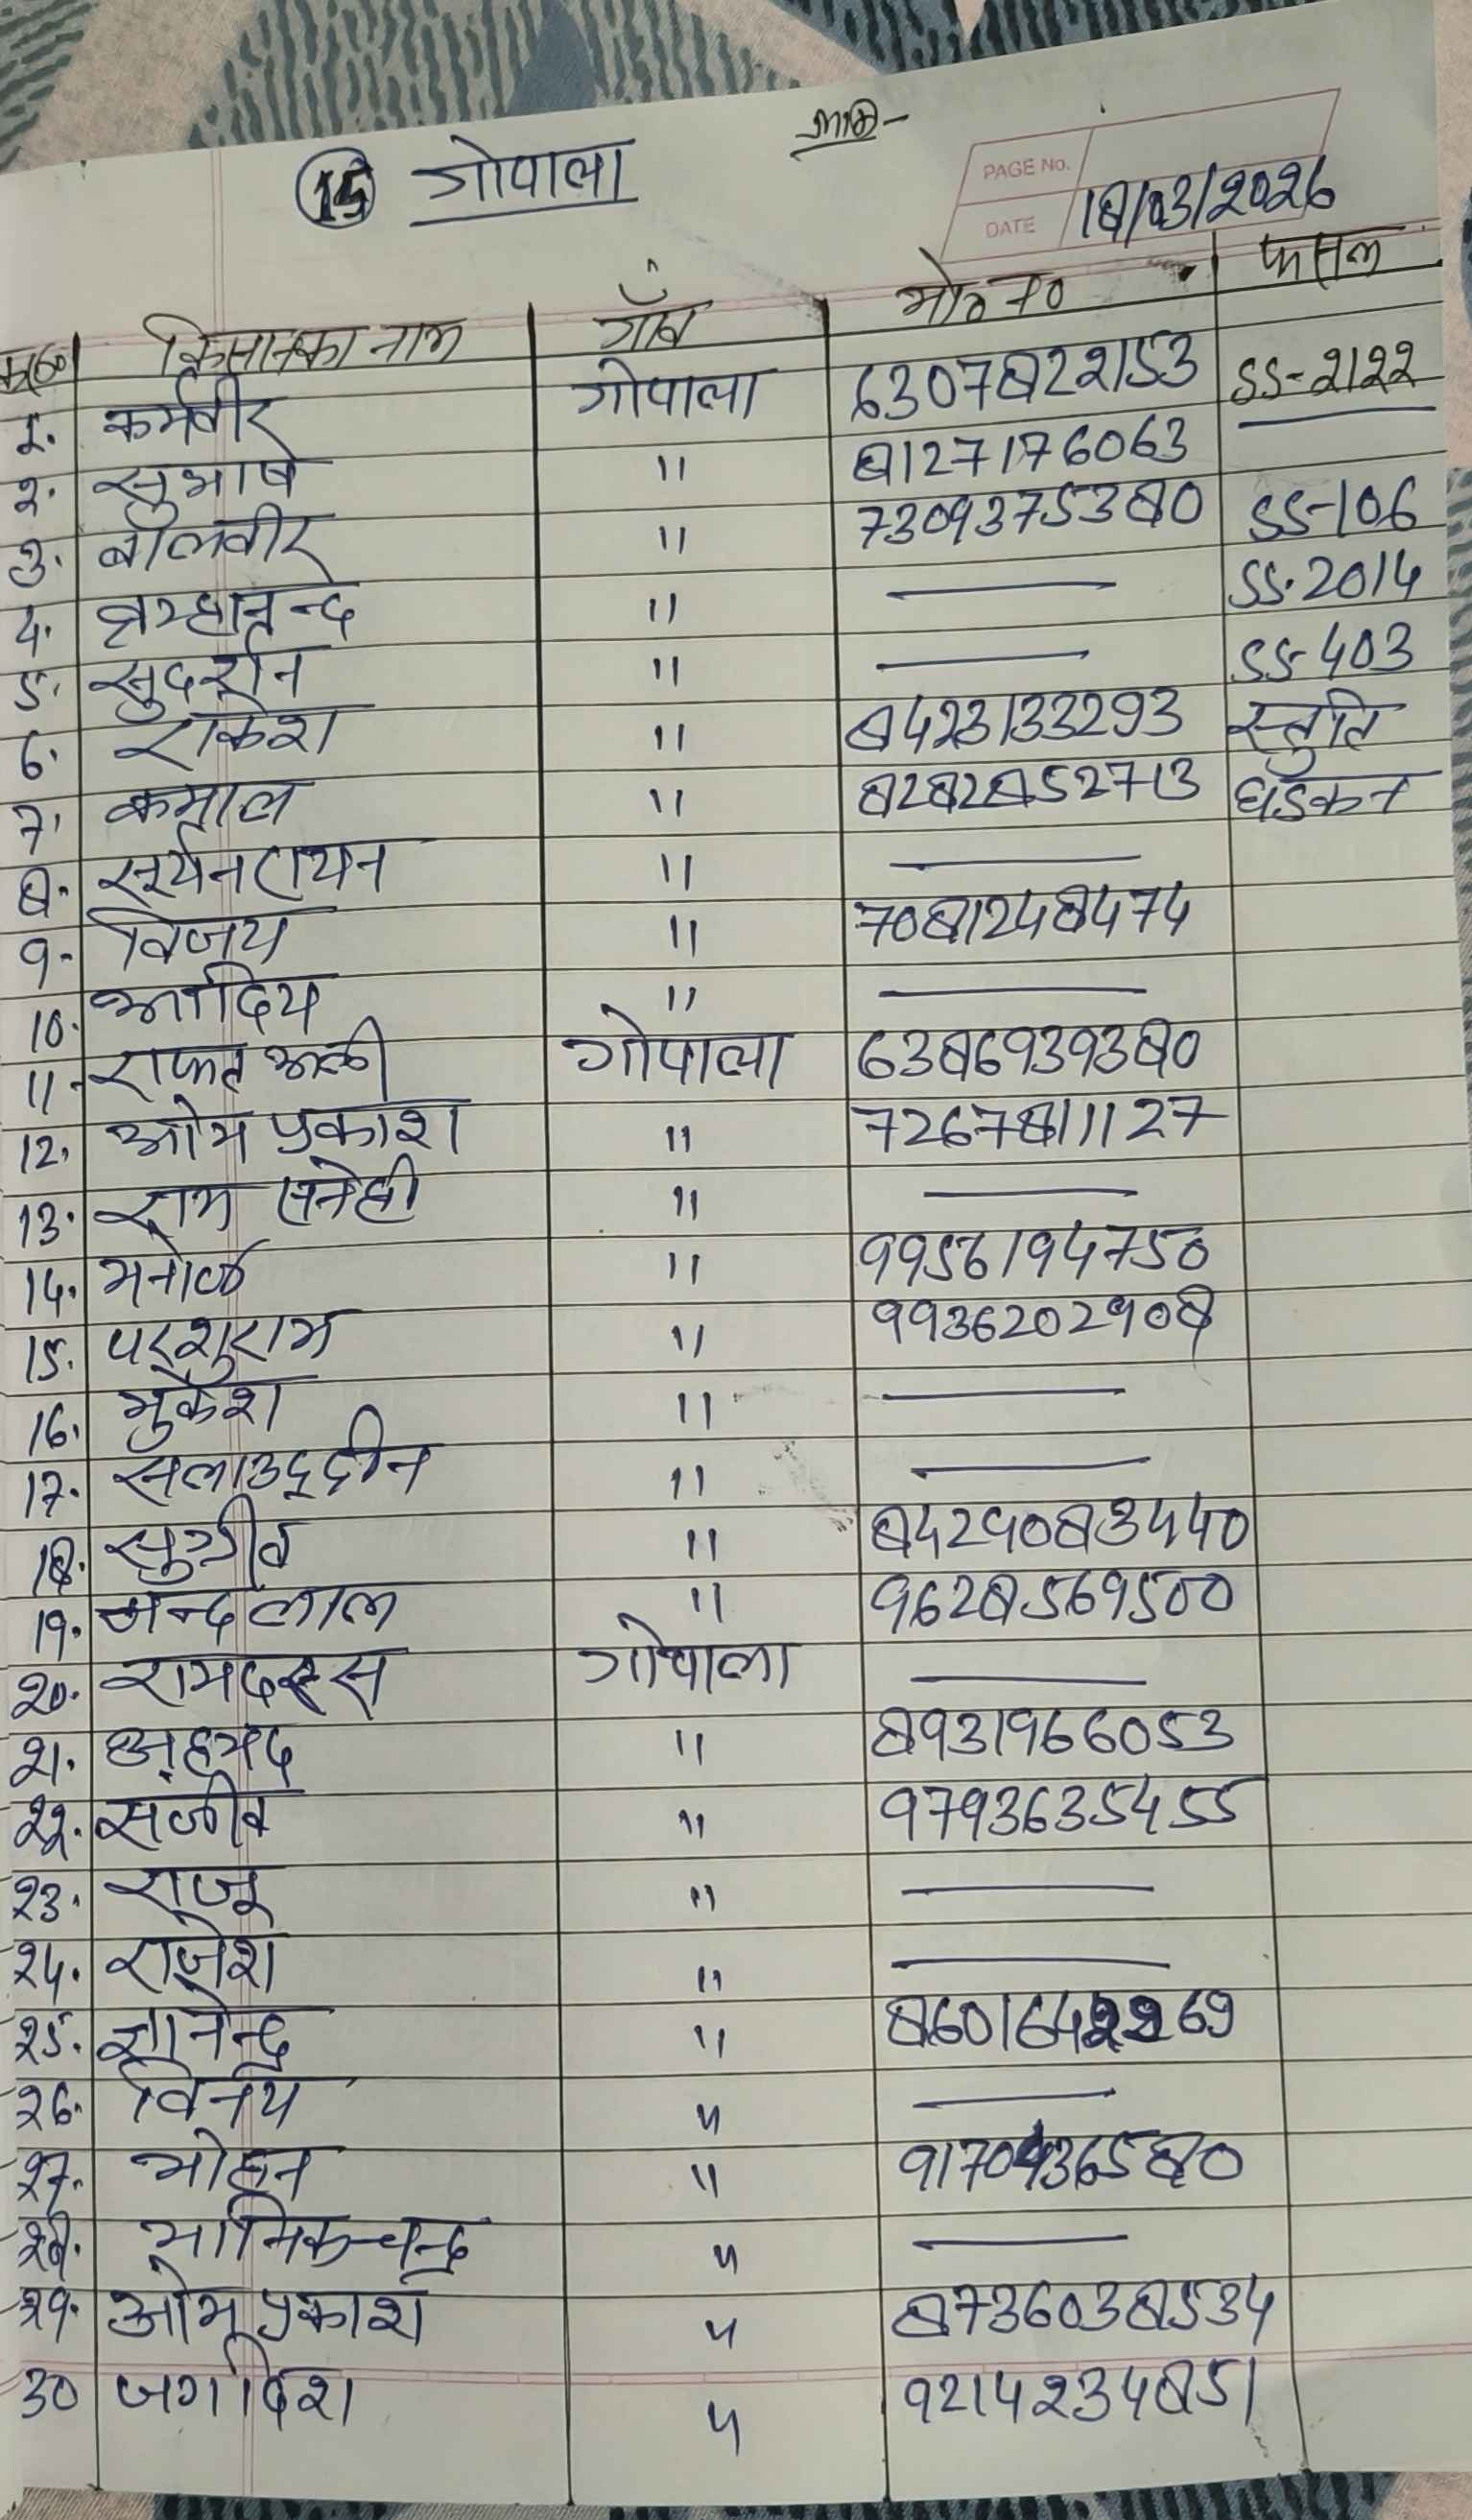 15 गोपाला
ग्राम-
PAGE No.
DATE 18/03/2026
क्र0सं0 किसान का नाम गाँव मो0 न0 फसल
1. कर्मवीर गोपाला 6307822153 SS-2122
2. सुभाष " 8127176063 —
3. बालवीर " 7309375380 SS-106
4. ब्रम्हानन्द " — SS-2014
5. सुदर्शन " — SS-403
6. राकेश " 8423133293 स्तुति
7. कमाल " 8282852713 धडकन
8. सूर्यनरायन " —
9. विजय " 7081248474
10. आदिय " —
11. राफत अली गोपाला 6386939380
12. ओम प्रकाश " 7267811127
13. राम सनेही " —
14. मनोज " 9956194750
15. परशुराम " 9936202908
16. मुकेश " —
17. सलाउद्दीन " —
18. सुग्रीव " 8429083440
19. नन्दलाल " 9628569500
20. रामदरस गोपाला —
21. अहमद " 8931966053
22. सजीव " 9793635455
23. राजू " —
24. राजेश " —
25. ज्ञानेन्द्र " 8601642269
26. विनय " —
27. मोहन " 9170436580
28. मानिकचन्द्र " —
29. ओम प्रकाश " 8736038534
30 जगदिश " 9214234851